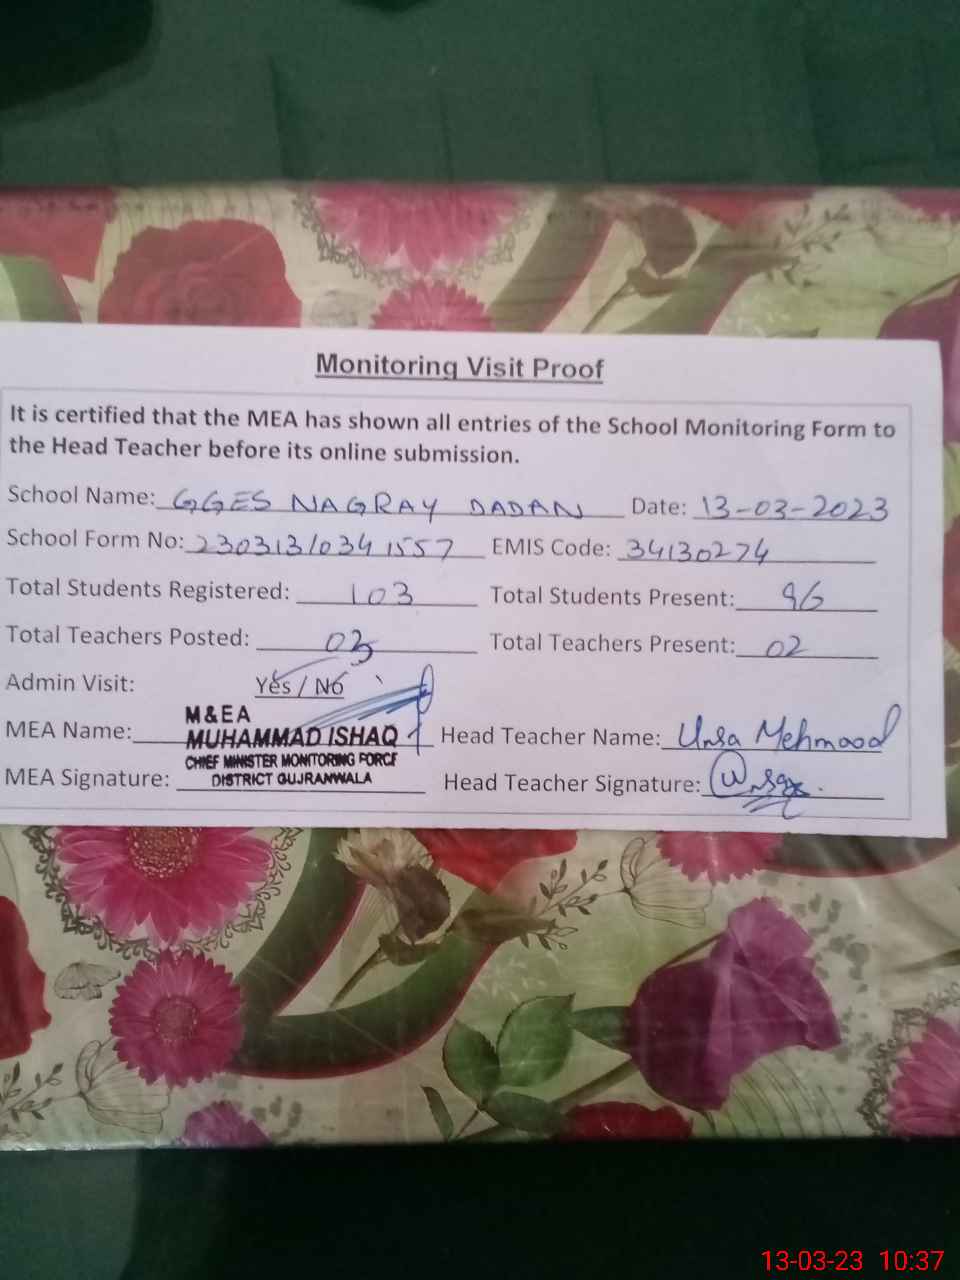 Monitoring Visit Proof
It is certified that the MEA has shown all entries of the School Monitoring Form to
the Head Teacher before its online submission.
School Name: GGES NAGRAY DADAN Date: 13-03-2023
School Form No: 230313/0341557 EMIS Code: 34130274
Total Students Registered: 103 Total Students Present: 96
Total Teachers Posted: 03 Total Teachers Present: 02
Admin Visit: Yes / No
M&EA
MEA Name: MUHAMMAD ISHAQ Head Teacher Name: Unsa Mehmood
CHIEF MINISTER MONITORING FORCE
MEA Signature: DISTRICT GUJRANWALA Head Teacher Signature:
13-03-23 10:37